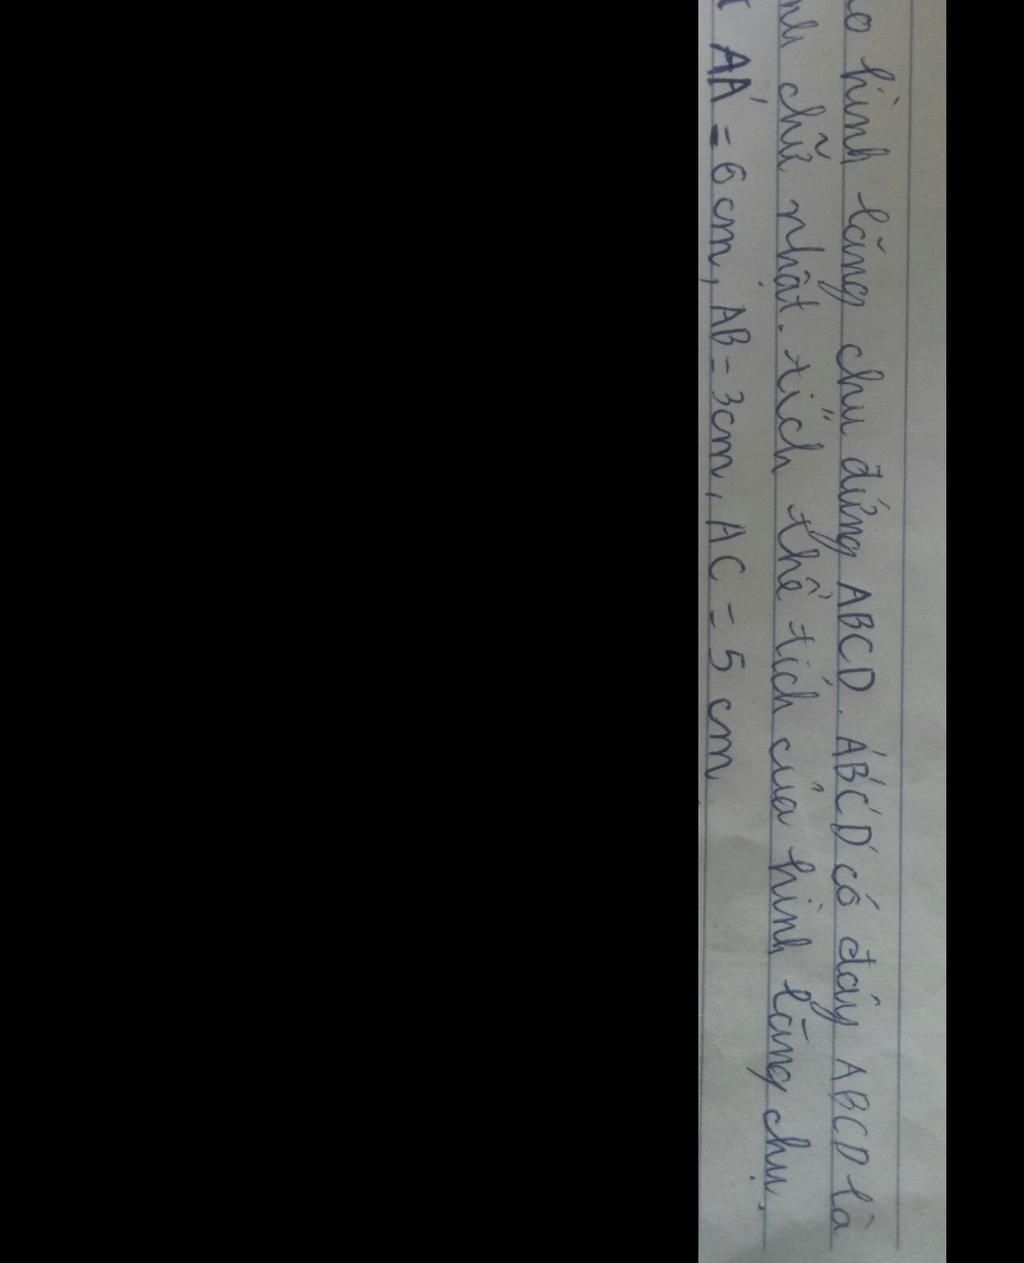 hình lăng chu đứng ABCD. A'B'C'D' có đáy ABCD là
chữ nhật. tích thể tích của hình lăng chụ.
AA' = 6cm, AB = 3cm, AC = 5 cm